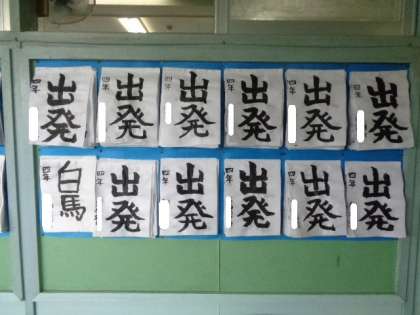 出発 四年
出発 四年
出発 四年
出発 四年
出発 四年
出発 四年
白馬 四年
出発 四年
出発 四年
出発 四年
出発 四年
出発 四年